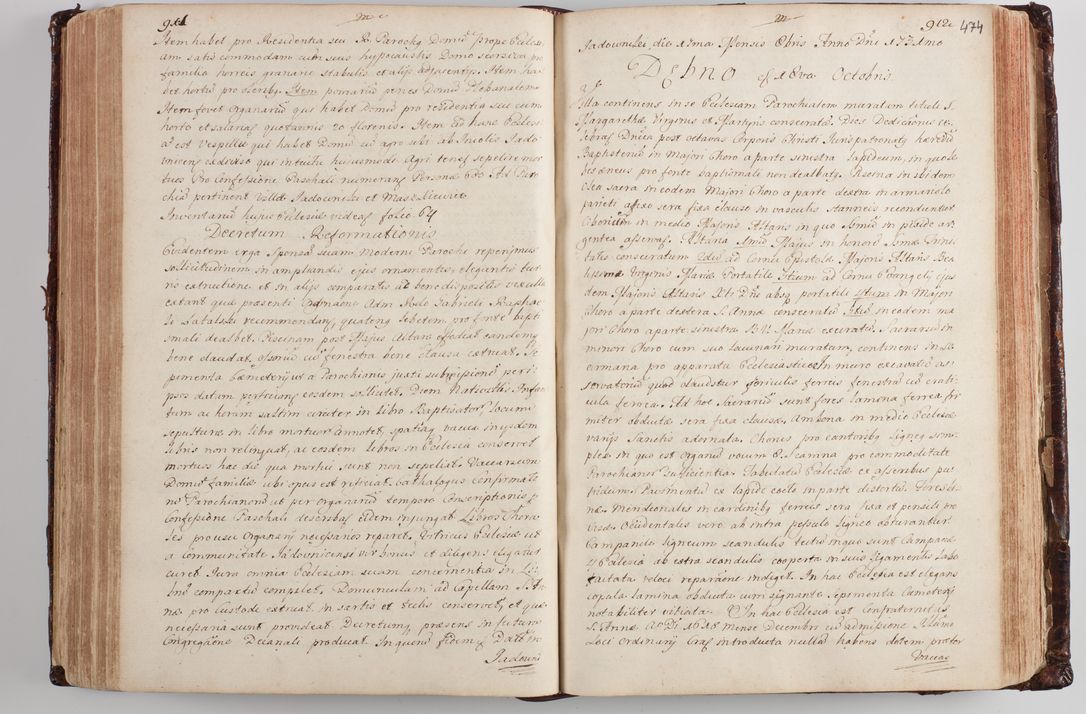 911
Item habet pro Residentia seu R. Parochy Domū prope Eccles:
am satis commodam cum suis hypocaustis Domo seorsiva pro
familia horreis granarŷ stabulis et alijs adjacentijs. Item ha
bet hortū pro oleribȝ. Item pomariū penes Domū Plebanalem
Item fovet Organariū qui habet Domū pro residentia sua cum
horto et salariat quotannis 20 florenis. Item ad hanc Eccles:
am est Vespillo qui habet Domū cum agro sibi ab Incolis Jado
vnicens: ex diviso qui intuitu hujusmodi Agri tenet sepelire mor
tuos Pro Confessione Paschali numerant Personæ 600 Ad Paro
chiā pertinent Villæ Jadowniki et Maszkienice
Inventariū hujus Ecclesiæ videat folio 64
Decretum Reformationis
Evidentem erga Sponsā suam Moderni Parochi reperimus
sollicitudinem in ampliandis ejus ornamentis, elegantis tur
ris extructione et in alijs comparatis ac bene dispositis vexilla
extant quæ præsenti Ordinaone Adm Rndo Gabrieli Raphae
li Latalski recommendant, quatenȝ lebetem pro fonte bapti
smali dealbet. Piscinam post Majus Altare effodiat eandemȝ
bene claudat, ossoriū cū fenestra bene clausa extruat. Se
pimenta Cæmeterij ut a Parochianis juxta subrepsionē peri
psos datam perficiant eosdem sollicitet, Diem Nativitatis Infan
tum ac horam saltim circiter in Libro Baptisator, locum
sepulturæ in libro mortuor Annotet, spatiaȝ vacua in ijsdem
Libris non relinquat, ac eosdem libros in Ecclesia conservet
mortuos hac die qua mortui sunt non sepeliat, Vaccarum
Domū familiæ ubi opus est reficiat. Cathalogum confirmatio
nis Parochianorū ut per Organariū tempore Conscriptionis p
Confessione Paschali describat eidem injungat Libros Chora
les pro usu Organarij necessarios reparet, Vitricus Ecclesiæ ut
a Communitate Jadovnicensi vir bonus et diligens eligatur
curet Jura omnia Ecclesiam suam concernentia in Li:
bro compacto compilet, Domunculam ad Capellam S. An
næ pro Custode extruat, in sartis et tectis conservet, et quæ
necessaria sunt provideat. Decretum præsens in futura
Congregaōne Decanali producat. In quorū fidem Datt in
Jadowni

912
474
Jadowniki die 17ma Mensis Obris Anno Dñi 1731mo
Dębno et 18va Octobris
Villa continens in se Ecclesiam Parochialem muratam tituli S.
Margarethæ Virginis et Martyris consecratā. Dies Dedicaōnis ce:
lebrat Dñica post octavas Corporis Christi Juris patronatȝ hæredū
Baptisteriū in Majori Choro a parte sinistra lapideum, in quo le
bes æneus pro fonte baptismali non dealbatȝ. Piscina in ibidem
Olea sacra in eodem Majori Choro a parte dextra in armariolo
parieti affixo sera fixa clauso in vasculis stanneis reconduntur
Ciboriū in medio Majoris Altaris in quo Ssmū in pixide ar
gentea asservat. Altaria 1mū Majus in honorē Ssmæ Trini
tatis consecratum 2dū ad Cornu Epistolæ Majoris Altaris Bea
tissimæ Virginis Mariæ Portatile 3tium ad Cornu Evangelij ejus
dem Majoris Altaris Xti Dñi absqȝ portatili 4tum in Majori
Choro a parte dextera S. Annæ consecratū 5tū in eodem ma
jori Choro a parte sinistra B. V. Mariæ execratū. Sacrarium in
minori Choro cum suo lavacrari muratum, continens in se
armaria pro apparatu Ecclesiastico In muro excavatū as
servatoriū quod clauditur foriculis ferreis fenestra cū crati:
cula ferrea. Ad hoc Sacrariū sunt fores lamina ferrea fir
miter obductæ sera fixa clausæ, Ambona in medio Ecclesiæ
varijs Sanctis adornata. Chorus pro cantoribȝ ligneȝ sim:
plex in quo est Organū vocum 8. Scamna pro commoditate
Parochianor sufficientia. Tabulatū Ecclesiæ ex asseribus pu
tridum, Pavimentū ex lapide cocto in parte distortū. Fores bi
næ Meridionales in cardinibȝ ferreis sera fixa et pensili pro
visæ, Occidentales vero ab intra pessulo ligneo obturantur.
Campanile ligneum scandulis tectū in quo sunt Campanæ
4 Ecclesia ab extra scandulis cooperta in suis ligamentis labe
factata veloci reparaōne indiget. In hac Ecclesia est elegans
copula lamina obducta cum signante Sepimenta Cæmeterij
notabiliter vitiata. In hac Ecclesia est Confraternitas
S. Annæ A. D. 1618 mense Decembri cū admissione Illmi
Loci Ordinarij Crac introducta nullā habens dotem præter
Vaccas